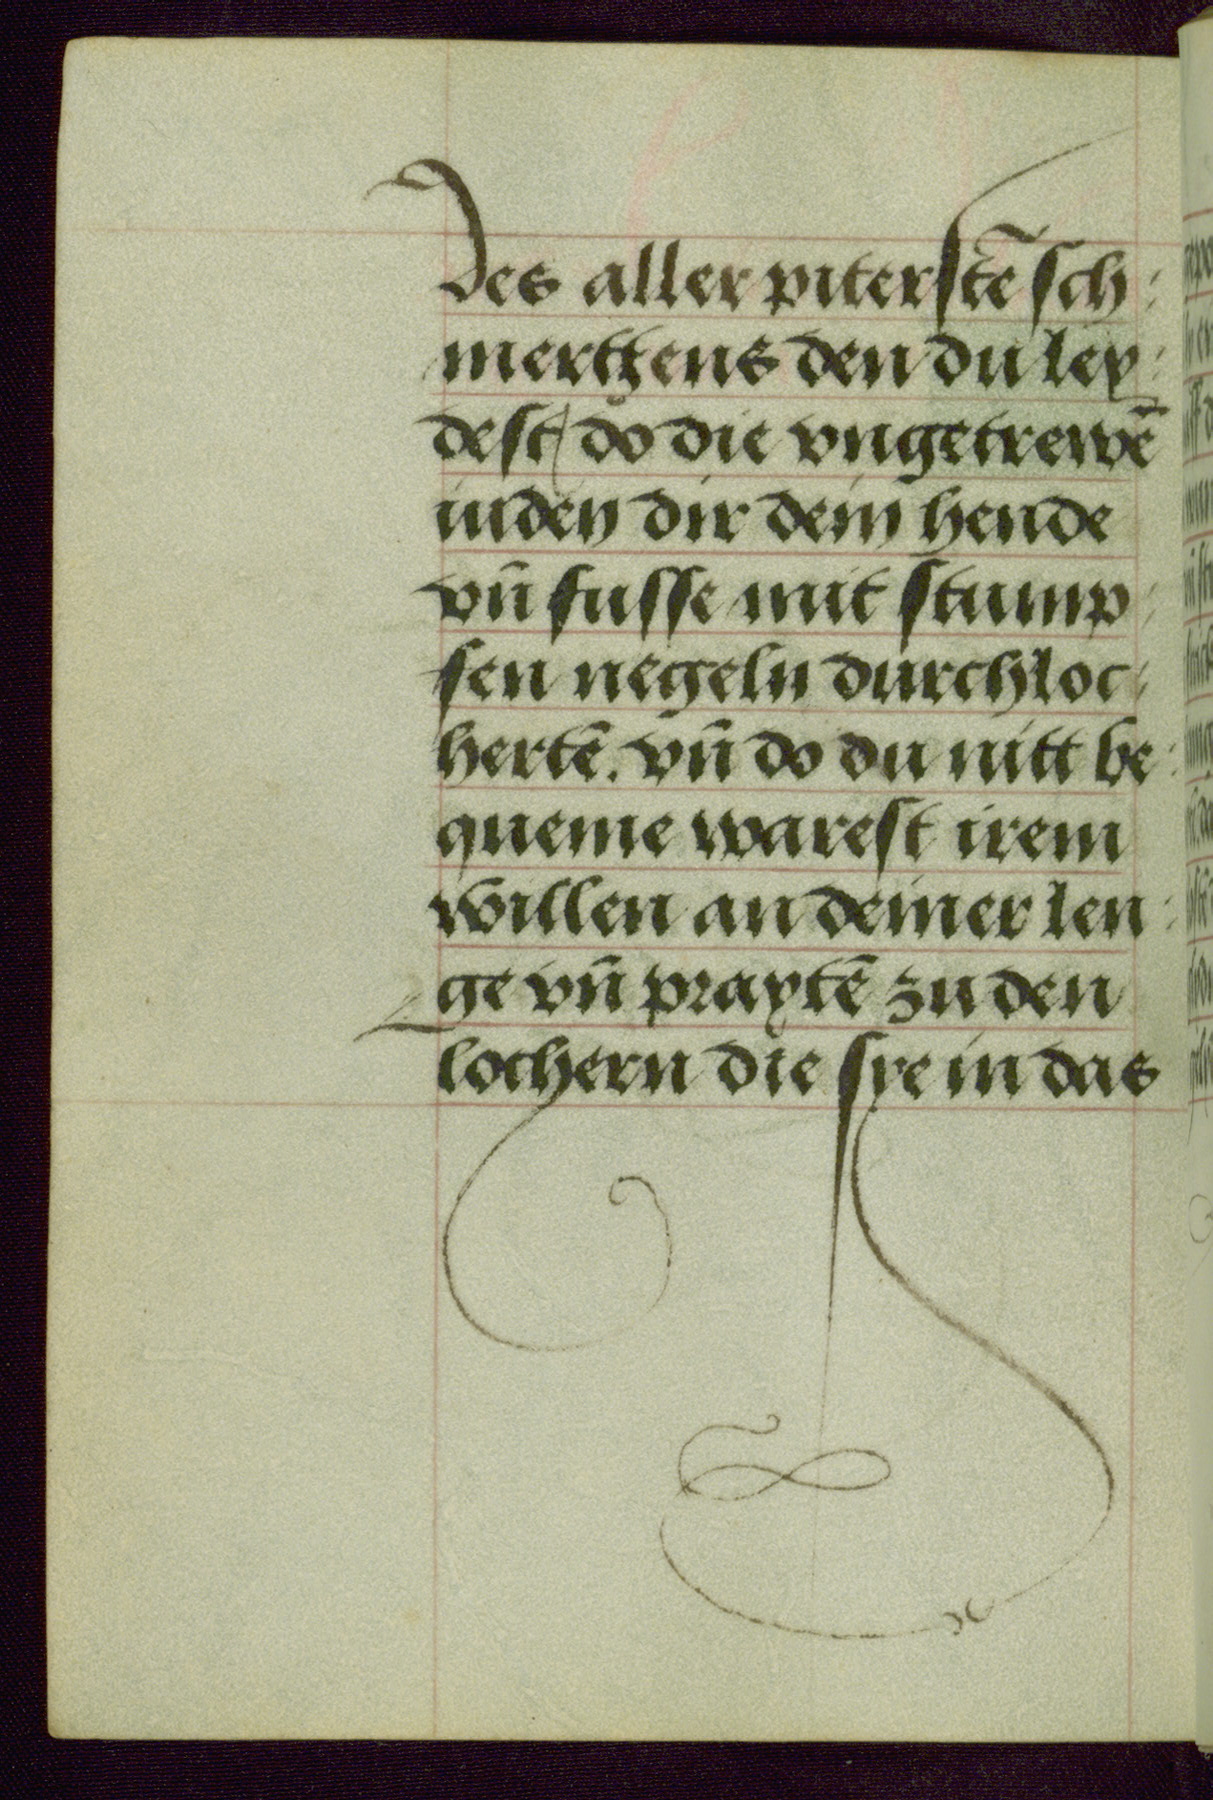 des aller piterstē sch
mertzens den du ley
dest / do die vngetrewē
iuden dir dein hende
vn̄ fusse mit stump
fen negeln durchloc
hertē. vn̄ do du nitt be
queme warest irem
willen an deiner len
ge vn̄ praytē zu den
lochern die sye in das